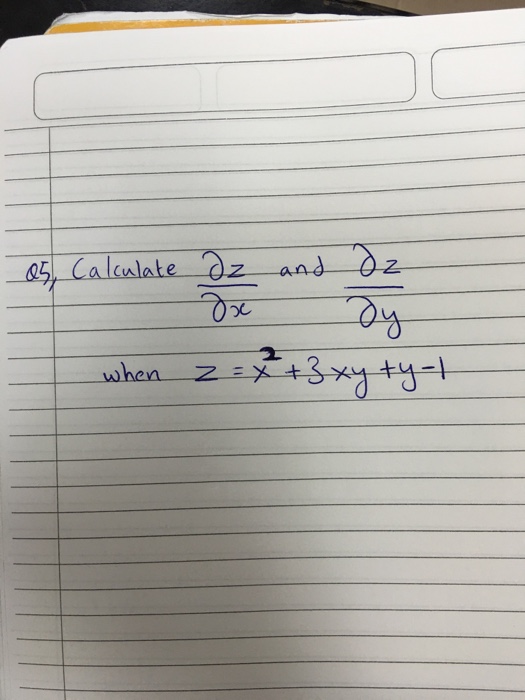 Q5, Calculate ∂z/∂x and ∂z/∂y
when z = x² + 3xy + y - 1